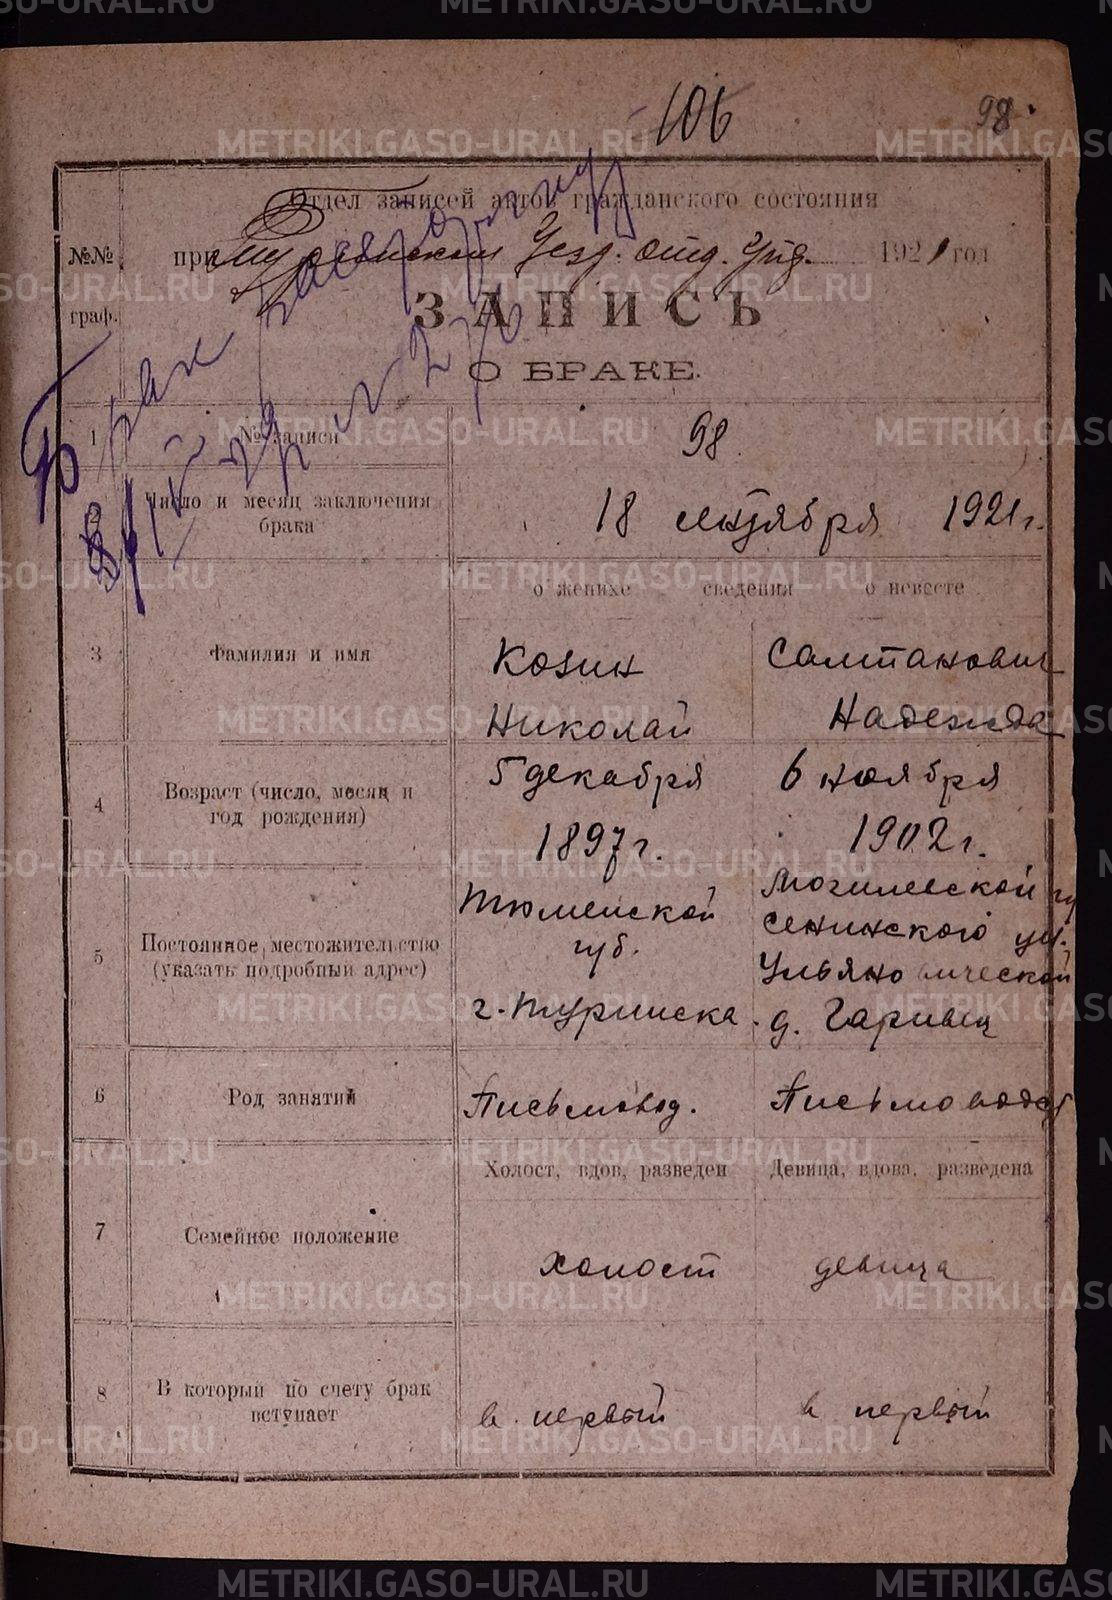 106
98
Отдел записей актов гражданского состояния
при Туринском Уезд. отд. Упр. 1921 год
№№ граф.
ЗАПИСЬ
О БРАКЕ.
Брак расторгнут
1 № записи 98
2 Число и месяц заключения брака
18 сентября 1921 г.
о женихе сведения о невесте
3 Фамилия и имя
Козин Салтанович
Николай Надежда
4 Возраст (число, месяц и год рождения)
5 декабря 6 ноября
1897 г. 1902 г.
5 Постоянное местожительство (указать подробный адрес)
Тюменской губ. г. Туринска
Могилевской гу
Сенинского у.
Ульяновической
д. Гаривец
6 Род занятий
Письмовод. Письмовод
Холост, вдов, разведен Девица, вдова, разведена
7 Семейное положение
холост девица
8 В который по счету брак вступает
в первый в первый
METRIKI.GASO-URAL.RU